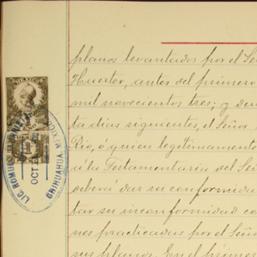 planos levantados por el Se
Huerter, antes del primero
mil novecientos tres; y den
ta dias siguientes, el Señor
Rio, ó quien legitimamente
cite Testamentaria del Se
deberá dar su conformidad
tar su inconformidad co
nes practicadas por el Señor
sus planos. En el primer
LIC. ROMULO
OCT
CHIHUAHUA